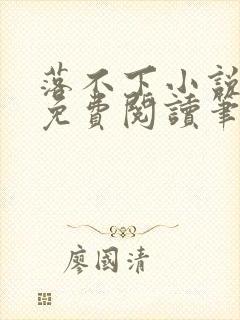 落不下小說
免費閱讀筆
廖國清